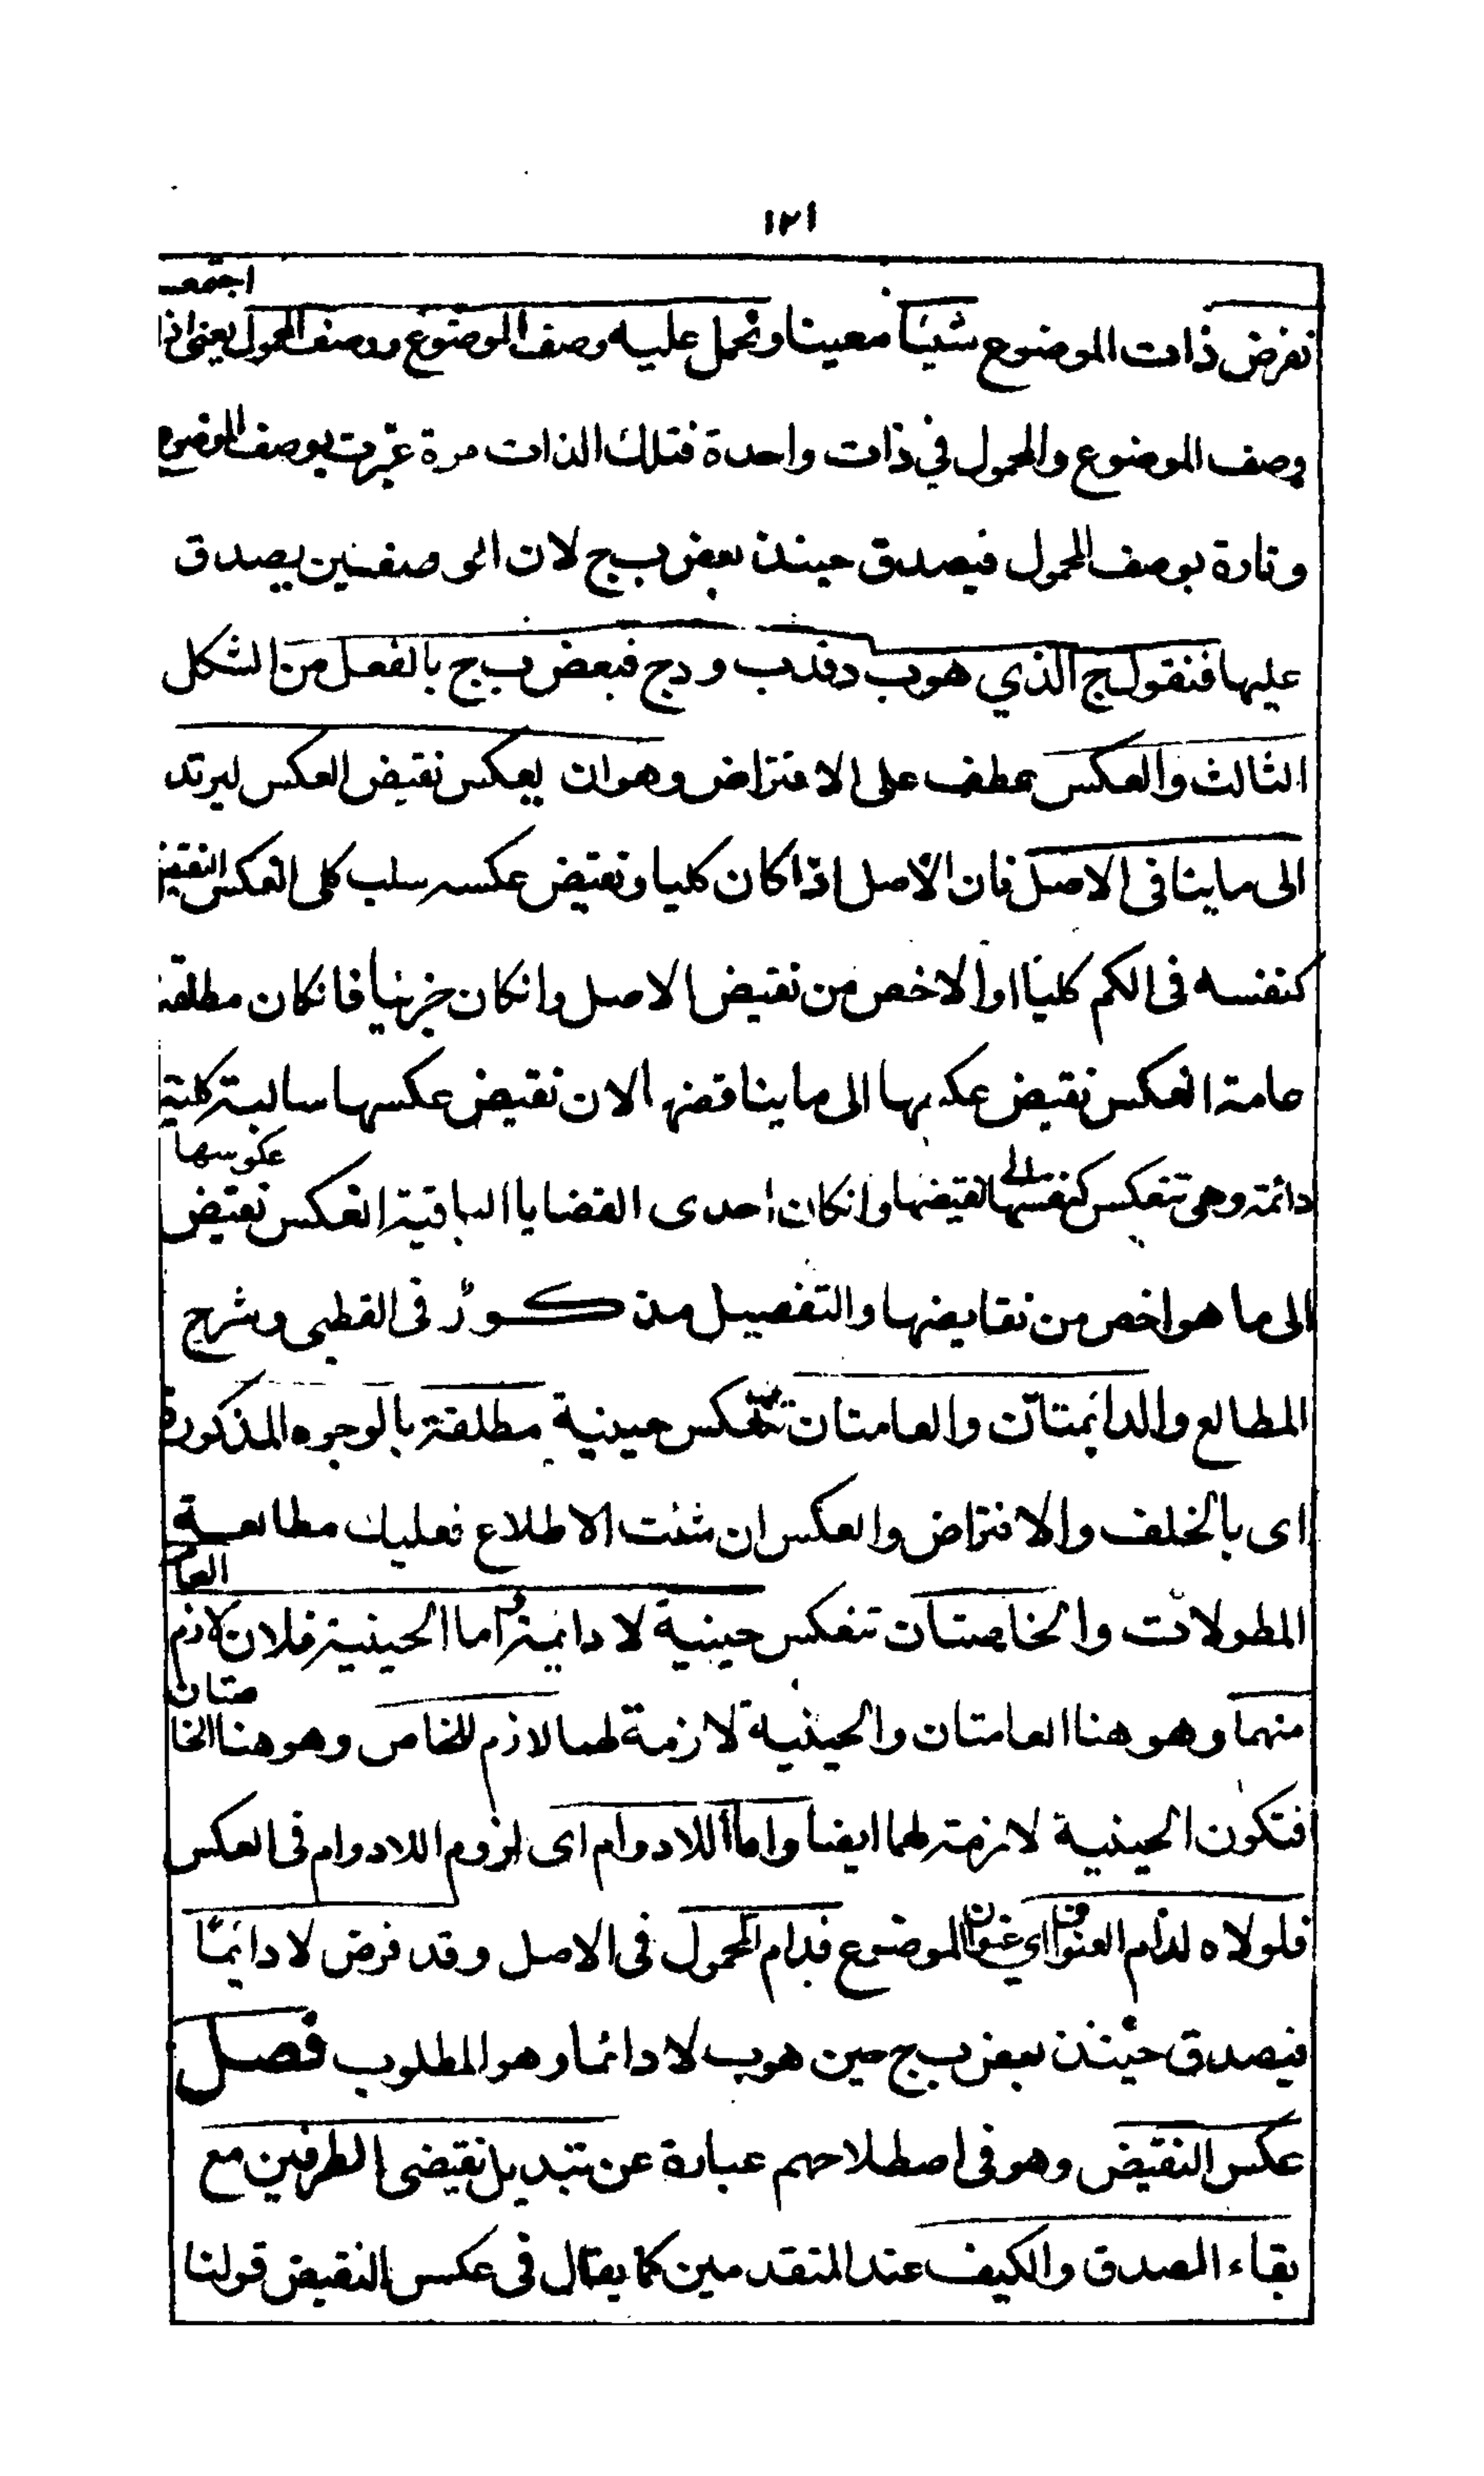 ١٢١
نفرض ذات الموضوع شيئا معينا ونحمل عليه وصف الموضوع ووصف المحمول يعنى اذا اجتمع
وصف الموضوع والمحمول في ذات واحدة فتلك الذات مرة عبّرت بوصف الموضوع
وتارة بوصف المحمول فيصدق حينئذ بعض ب ج لان الوصفين يصدق
عليها فنقول ج الذي هو ب د فد ب و د ج فبعض ب ج بالفعل من الشكل
الثالث والعكس عطف على الافتراض وهو ان يعكس نقيض العكس ليرتد
الى ما ينافى الاصل فان الاصل اذا كان كليا ونقيض عكسه سلب كلى انعكس النقيض
كنفسه فى الكم كليا او الاخص من نقيض الاصل وانكان جزئيا فانكان مطلقة
عامة انعكس نقيض عكسها الى ما يناقضها لان نقيض عكسها سالبة كلية
دائمة وهى تنعكس كنفسها الى نقيضها وانكان احدى القضايا الباقية انعكس نقيض عكوسها
الى ما هو اخص من نقايضها والتفصيل مذكور فى القطبى وشرح
المطالع والدائمتان والعامتان تنعكس حينية مطلقة بالوجوه المذكورة
اى بالخلف والافتراض والعكس ان شئت الاطلاع فعليك مطالعة
المطولات والخاصتان تنعكس حينية لا دائمة اما الحينية فلان لازم العام
منهما وهو هنا العامتان والحينية لازمة لهما لازم للخاص وهو هنا الخاصتان
فتكون الحينية لازمة لهما ايضا واما اللادوام اى لزوم اللادوام فى العكس
فلولاه لدام العنوان اي عنوان الموضوع فدام المحمول فى الاصل وقد فرض لا دائما
فيصدق حينئذ بعض ب ج حين هو ب لا دائما وهو المطلوب فصل
عكس النقيض وهو فى اصطلاحهم عبارة عن تبديل نقيضى الطرفين مع
بقاء الصدق والكيف عند المتقدمين كما يقال فى عكس النقيض قولنا